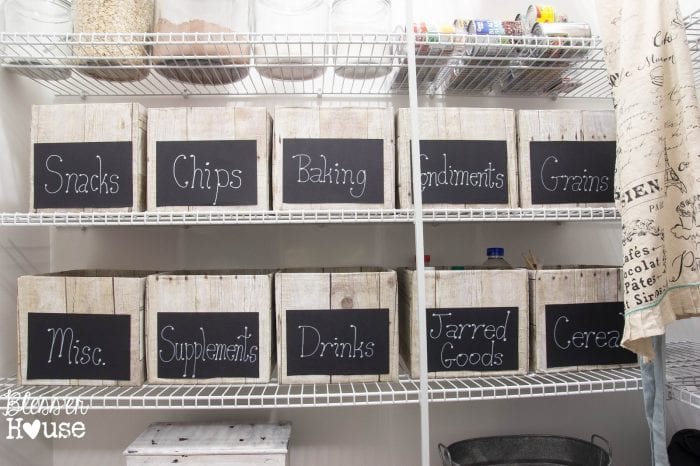 Snacks
Chips
Baking
ndiments
Grains
Misc.
Supplements
Drinks
Jarred
Goods
Cerea
Cafés
Chocolat
Pâtes
Sirops
Blesser
House